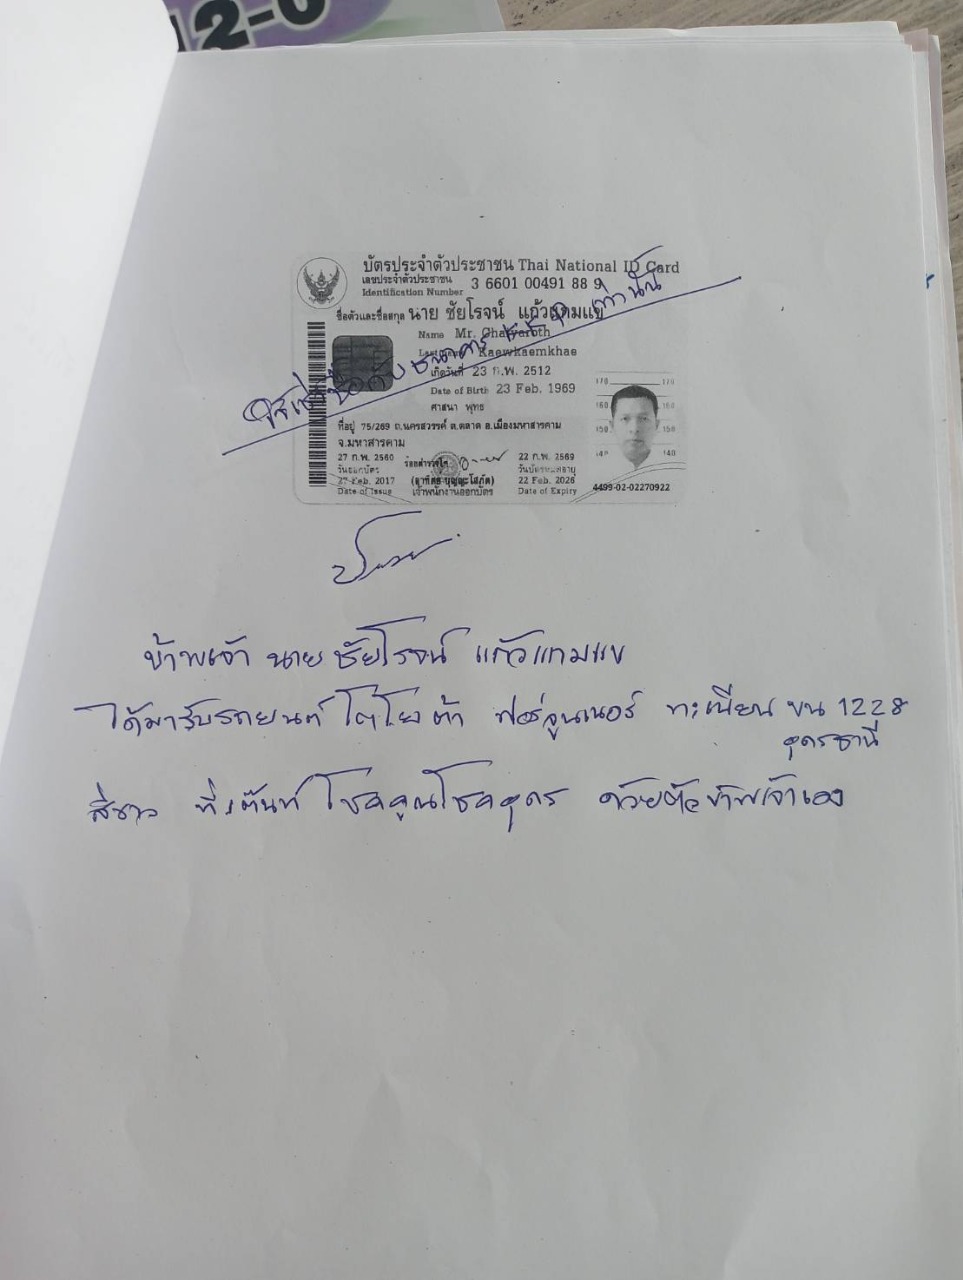 12-0
บัตรประจำตัวประชาชน Thai National ID Card
เลขประจำตัวประชาชน 3 6601 00491 88 9
Identification Number
ชื่อตัวและชื่อสกุล นาย ชัยโรจน์ แก้วแกมแข
Name Mr. Chaiyaroth
Last name Kaewkaemkhae
เกิดวันที่ 23 ก.พ. 2512
Date of Birth 23 Feb. 1969
ศาสนา พุทธ
ที่อยู่ 75/269 ถ.นครสวรรค์ ต.ตลาด อ.เมืองมหาสารคาม
จ.มหาสารคาม
27 ก.พ. 2560
วันออกบัตร
27 Feb. 2017
Date of Issue
ร้อยตำรวจโท
เจ้าพนักงานออกบัตร
22 ก.พ. 2569
วันบัตรหมดอายุ
22 Feb. 2026
Date of Expiry
170 170
160 160
150 150
140 140
4499-02-02270922
เท่านั้น
ข้าพเจ้า นาย ชัยโรจน์ แก้วแกมแข
ได้มารับรถยนต์ โตโยต้า ฟอร์จูนเนอร์ ทะเบียน ขน 1228
อุดรธานี
สีขาว ที่เต๊นท์ โชคคูณโชคอุดร ด้วยตัวข้าพเจ้าเอง